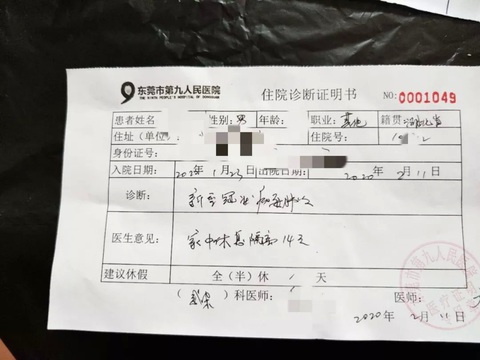 东莞市第九人民医院
THE NINTH PEOPLE'S HOSPITAL OF DONGGUAN
住院诊断证明书
NO:0001049
患者姓名 性别: 男 年龄: 职业: 其他 籍贯:
住址(单位 住院号:
身份证号:
入院日期: 2020年1月23 出院日期: 2020年2月11日
诊断: 新型冠状病毒肺炎
医生意见: 家中休息隔离14天
建议休假 全(半)休 天
( 感染 )科医师: 医师:
2020年2月11日
市第九人民医院